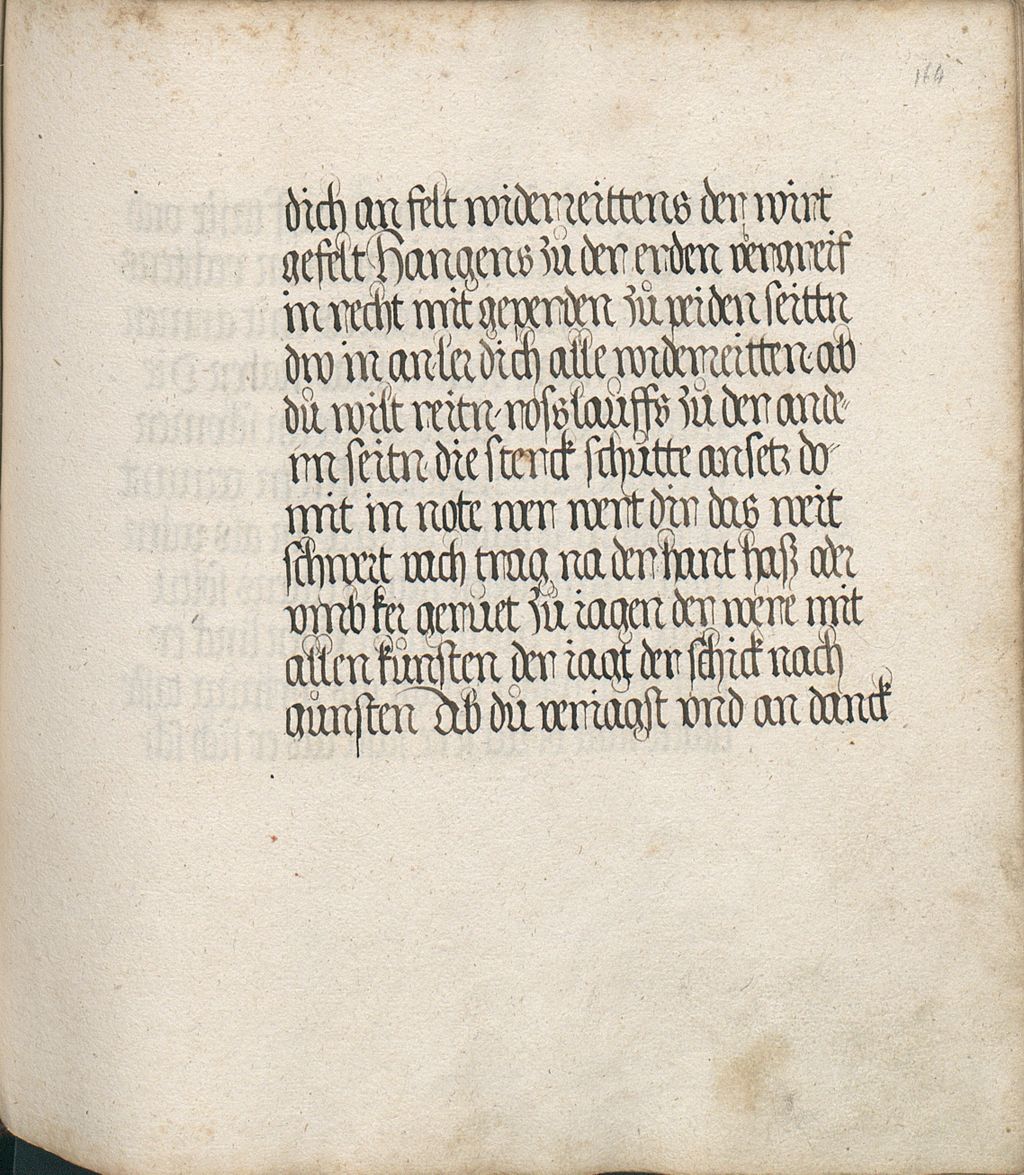 164
dich an felt widerreittens der wirt
gefelt Hangens zů der erden vergreif
in recht mit geperden zů peiden seittn
dro in an ler dich alle widerreitten ab
dů wilt reitn rosslauffs zů der ande-
rn seitn die sterck schůtte ansetz do-
mit in note wer wert dir das weit
schwert vach trag na der hant hafz oder
vmb ker geruet zů iagen der were mit
allen kůnsten der iagt der schick nach
gůnsten Ab dů veriagst vnd an danck